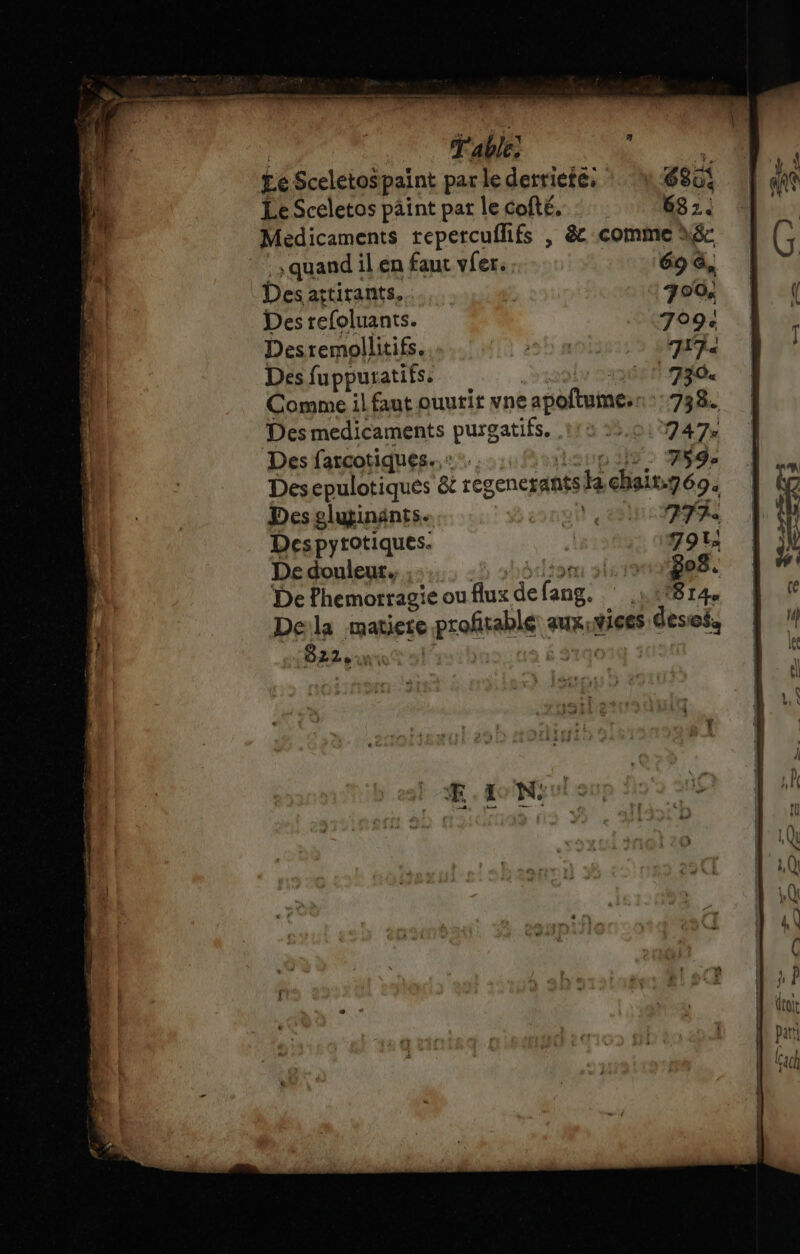 Table.
Le Sceletos paint par le derriere. 680.
Le Sceletos paint par le costé. 682.
Medicaments repercussifs , & comme &
, quand il en faut vser. 696,
Des attirants. 700.
Des resoluants. 709.
Des remollitifs. 717.
Des suppuratifs. 730.
Comme il faut ouurir vne apostume. 738.
Des medicaments purgatifs. 747.
Des sarcotiques. 759.
Des epulotiques & regenerants la chair. 769.
Des glutinants. 777.
Des pyrotiques. 791.
De douleur. 808.
De l'hemorragie ou flux de sang. 814.
De la matiere profitable aux vices des os,
822.
F I N.